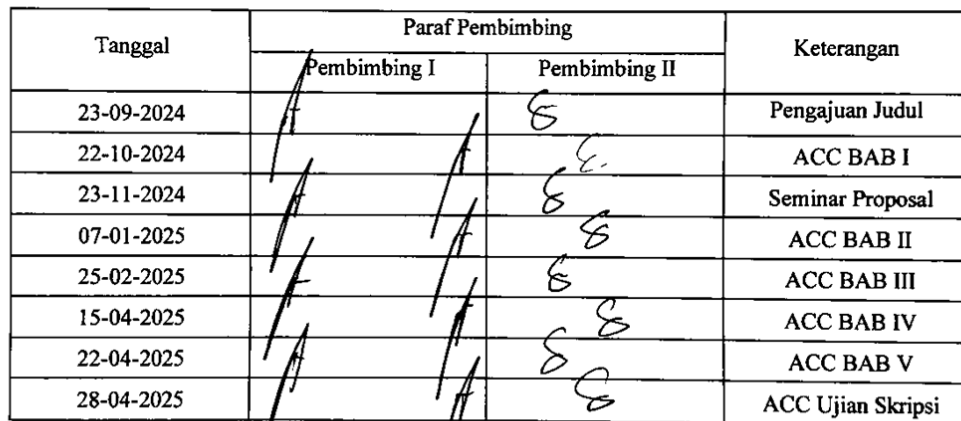 Tanggal Paraf Pembimbing Keterangan
Pembimbing I Pembimbing II
23-09-2024 Pengajuan Judul
22-10-2024 ACC BAB I
23-11-2024 Seminar Proposal
07-01-2025 ACC BAB II
25-02-2025 ACC BAB III
15-04-2025 ACC BAB IV
22-04-2025 ACC BAB V
28-04-2025 ACC Ujian Skripsi